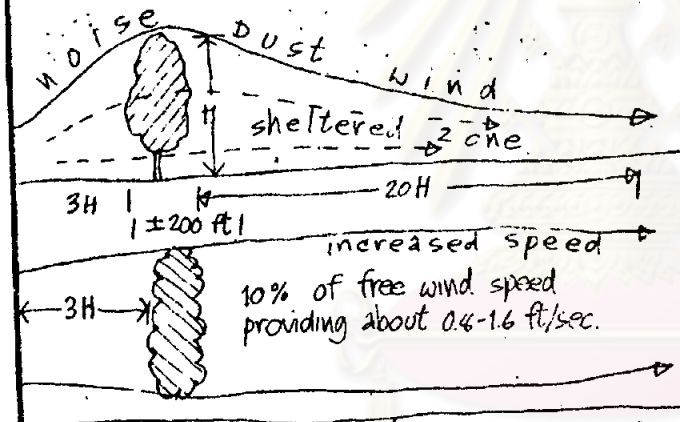 noise Dust wind
H
sheltered zone
3H 20H
±200 ft
increased speed
3H
10% of free wind speed
providing about 0.8-1.6 ft/sec.